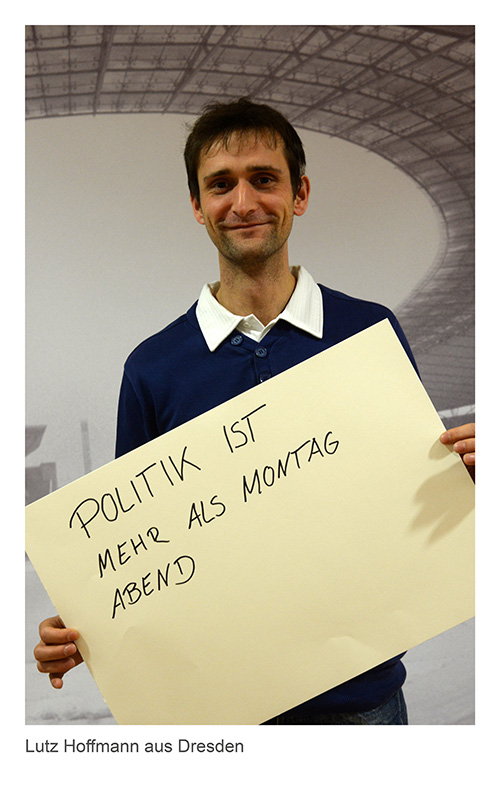 POLITIK IST
MEHR ALS MONTAG
ABEND
Lutz Hoffmann aus Dresden